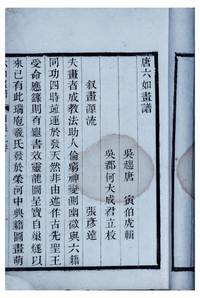 唐六如畫譜
吳趨唐 寅伯虎輯
吳郡何大成君立校
叙畫源流 張彥遠
夫畫者成教法助人倫窮神變測幽微與六籍
同功四時竝運於發天然非由述作古先聖王
受命應籙則有龜書效靈龍圖呈寶自巢燧以
來已有此瑞庖羲氏發於滎河中典籍圖畫萌